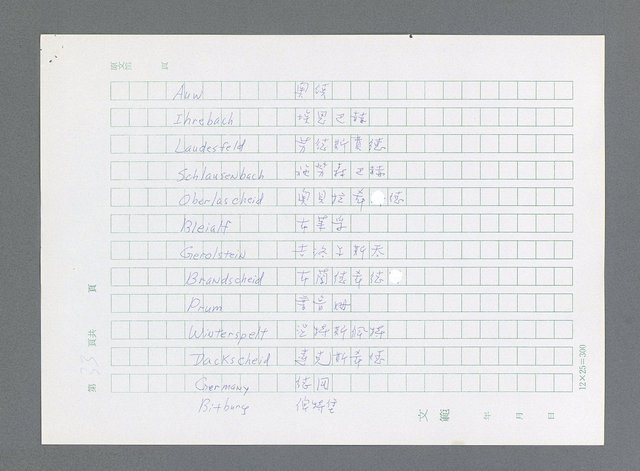 原文第 頁
Auw 奧伏
Ihrebach 埃恩巴赫
Laudesfeld 勞德斯費德
Schlausenbach 施勞森巴赫
Oberlascheid 奧貝拉希德
Bleialf
Gerolstein
Brandscheid 布蘭德希德
Prum 普魯姆
Winterspelt 溫特斯佩特
Dackscheid 達克斯希德
Germany 德国
Bitburg 伯特堡
第 33 頁共 頁
文範
年 月 日
12×25=300